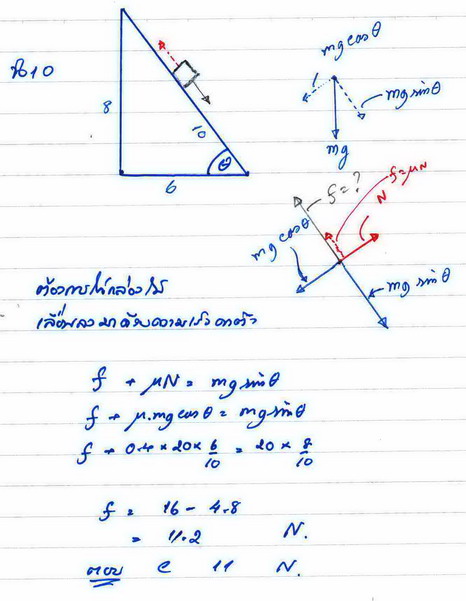 ข้อ 10
8
10
6
θ
mg cosθ
mg sinθ
mg
f = ?
f = μN
N
mg cosθ
mg sinθ
ต้องการให้กล่องไม้
เลื่อนลงมาด้วยความเร็วคงตัว
f + μN = mg sinθ
f + μ.mg cosθ = mg sinθ
f + 0.4 × 20 × 6/10 = 20 × 8/10
f = 16 - 4.8
= 11.2 N.
ตอบ C 11 N.